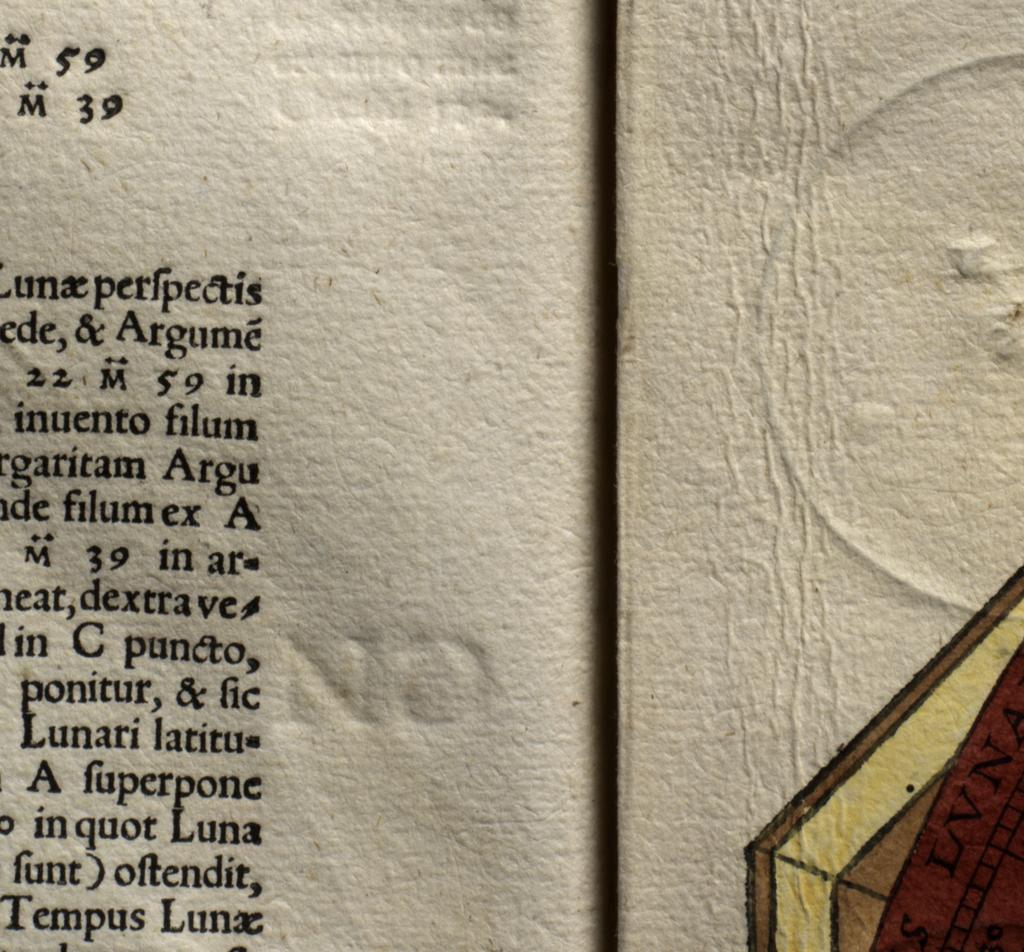 M̈ 59
M̈ 39
Lunæ perſpectis
ede, & Argumē
22 M̈ 59 in
inuento filum
rgaritam Argu
nde filum ex A
M̈ 39 in ar-
neat, dextra ve-
in C puncto,
ponitur, & ſic
Lunari latitu-
A ſuperpone
o in quot Luna
ſunt) oſtendit,
Tempus Lunæ
NO
S LVNA